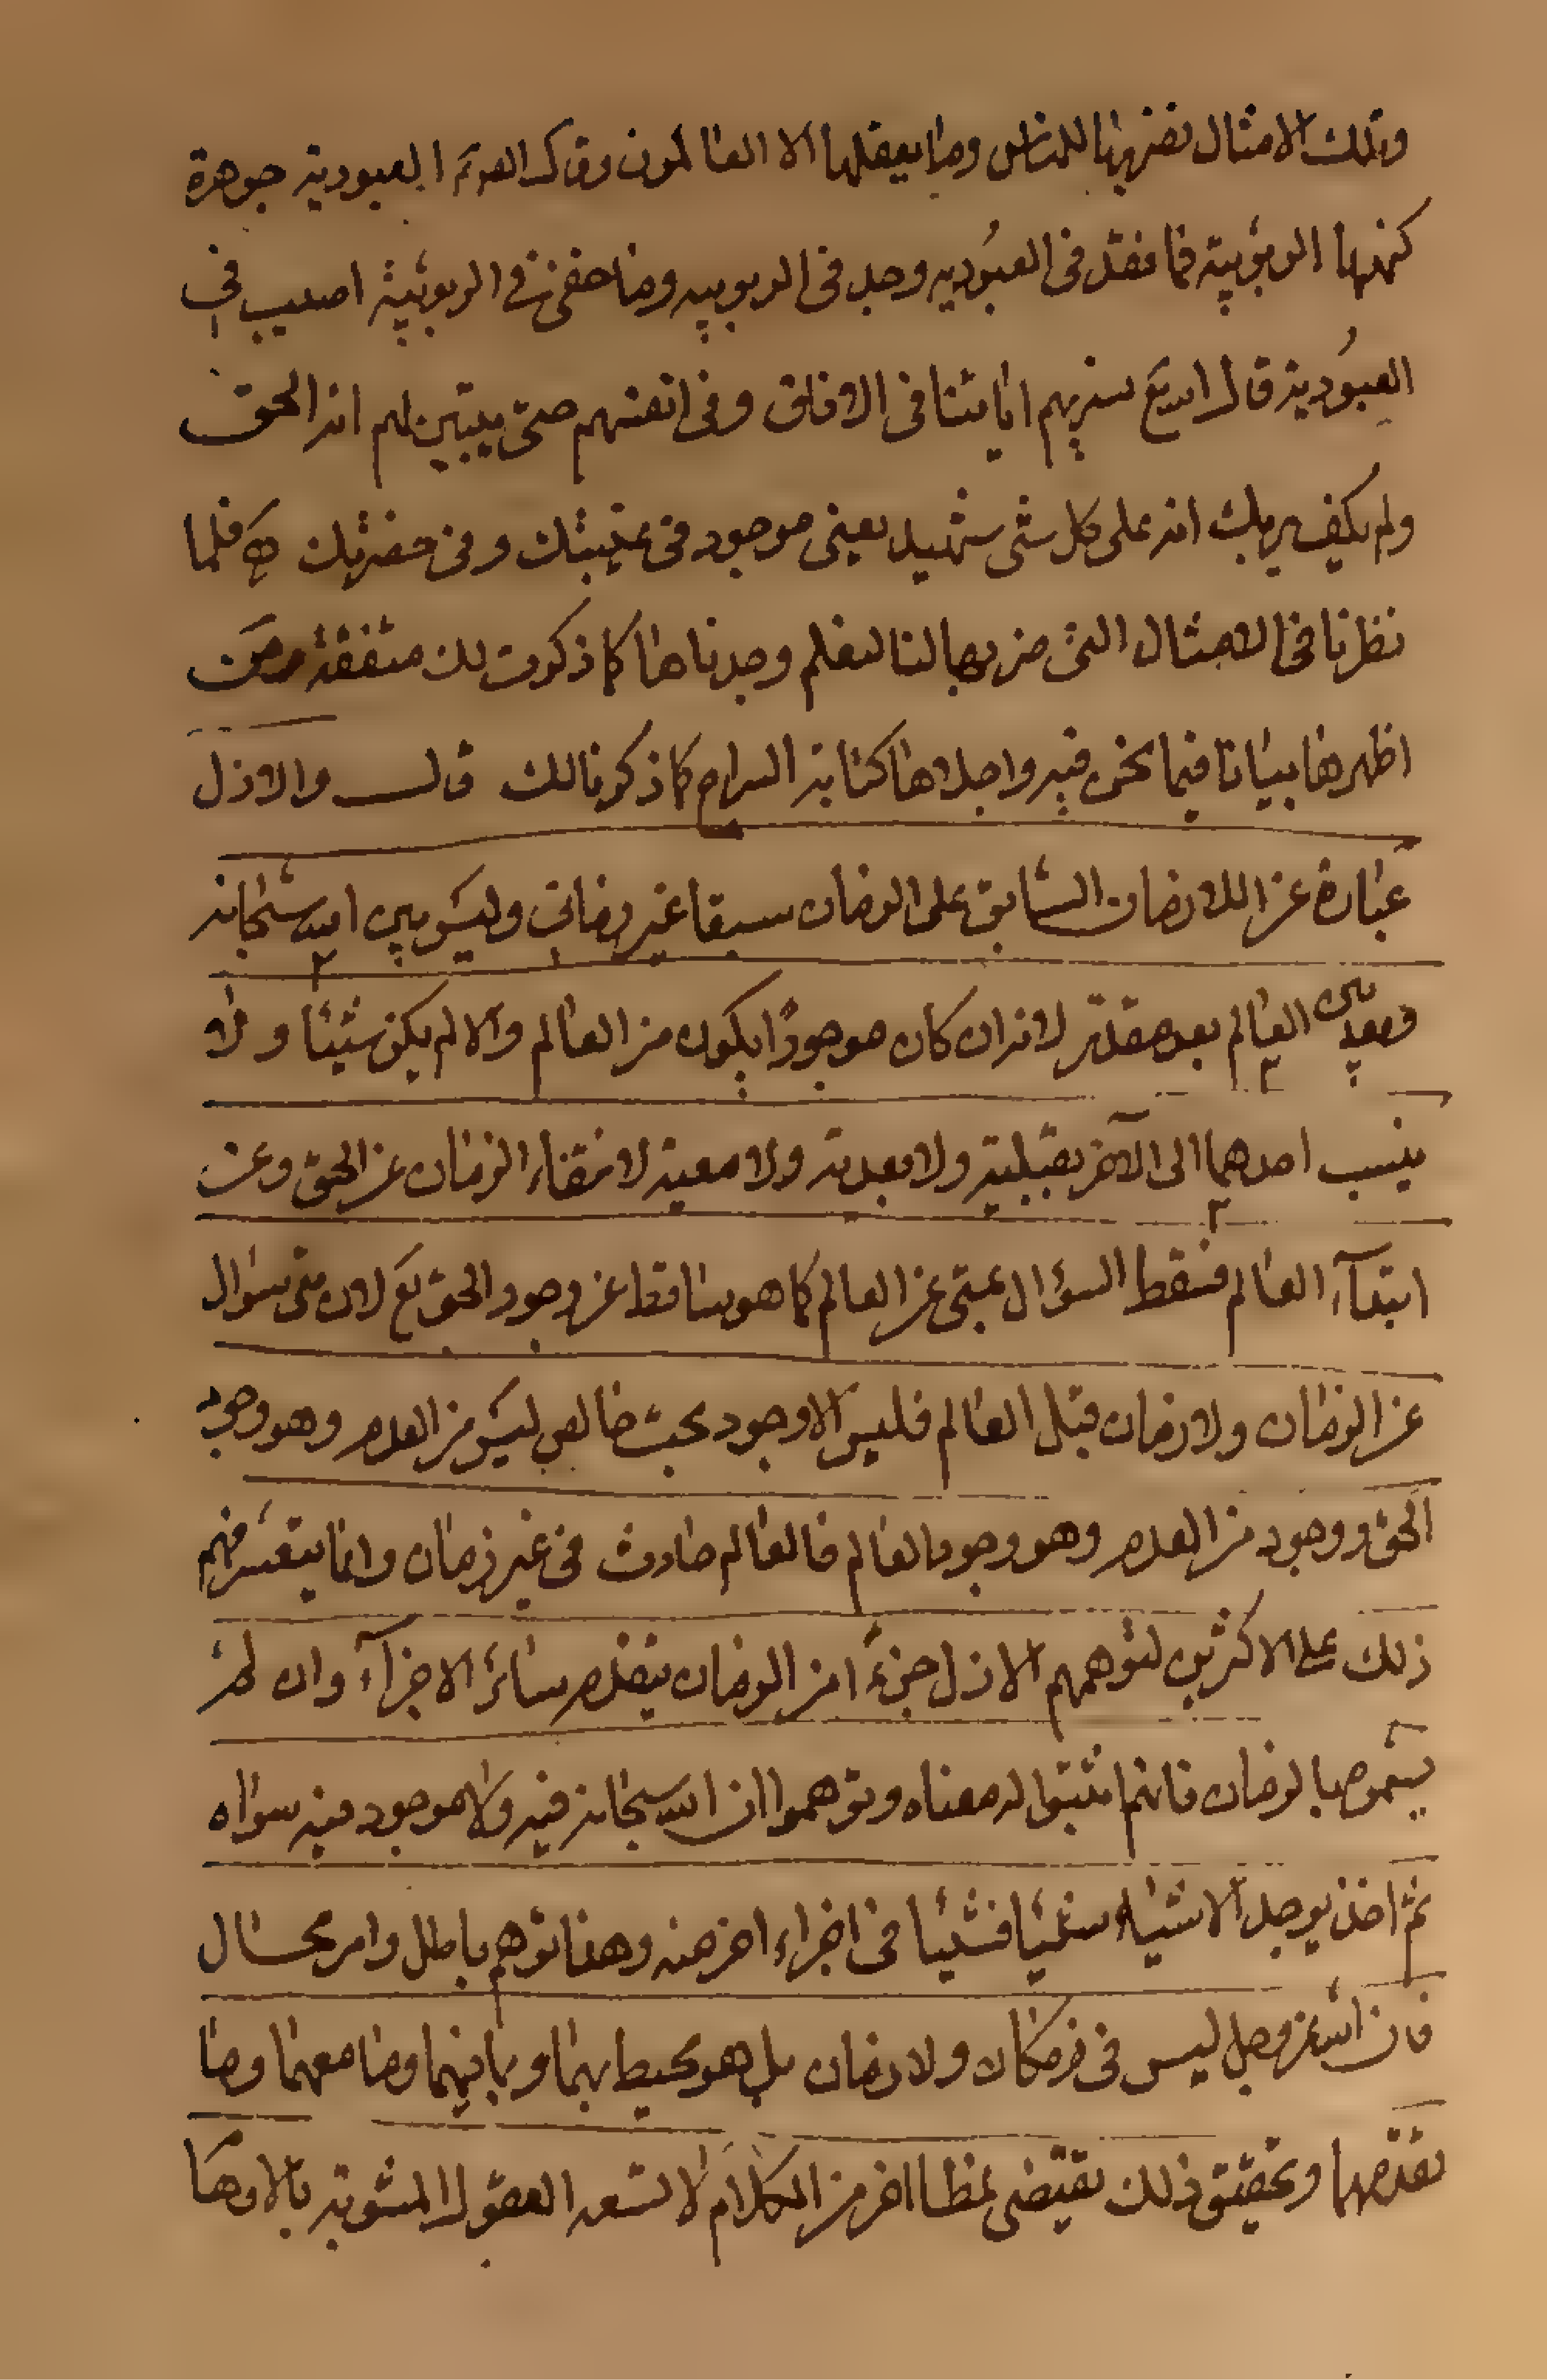 وتلك الامثال نضربها للناس وما يعقلها الا العالمون وقال الصوع العبودية جوهرة
كنهها الربوبية فما فقد فى العبوديه وجد فى الربوبيه وما خفى فى الربوبية اصيب فى
العبودية قال الله تع سنريهم اياتنا فى الافاق وفى انفسهم حتى يتبين لهم انه الحق
ولم يكف بربك انه على كل شى شهيد يعنى موجود فى غيبتك وفى حضرتك فلما
نظرنا فى الامثال التى ضربها لنا لنعلم وجدناها كما ذكرت لك متفقة ومن
اظهرها بيانا فيما نحن فيه واجلاها كناية السراج كما ذكرنا لك قال والازل
عبارة عن اللازمان السابق على الزمان سبقا غير زمانى وليس بين الله سبحانه
وبين العالم بعد مقدر لانه ان كان موجودا يكون من العالم والا لم يكن شيئا ولا
ينسب احدهما الى الآخر بقبلية ولا بعدية ولا معية لانتفاء الزمان عن الحق وعن
ابتداء العالم فسقط السؤال بمتى عن العالم كما هو ساقط عن وجود الحق تع لان متى سؤال
عن الزمان ولا زمان قبل العالم فليس الا وجود بحت خالص ليس من العدم وهو وجود
الحق ووجود من العدم وهو وجود العالم فالعالم حادث فى غير زمان وانما يتعسر فهم
ذلك على الاكثرين لتوهمهم الازل جزءا من الزمان يتقدم سائر الاجزاء وان لم
يسموه بالزمان فانهم اثبتوا له معناه وتوهموا ان الله سبحانه فيه ولا موجود فيه سواه
ثم اخذ يوجد الاشياء شيئا فشيئا فى اجزاء اخر منه وهذا توهم باطل وامر محال
فان الله عز وجل ليس فى مكان ولا زمان بل هو محيط بهما وبما فيهما وما معهما وما
تقدمهما وتحقيق ذلك يقتضى نمطا اخر من الكلام لا تسعه العقول المشوبة بالاوها